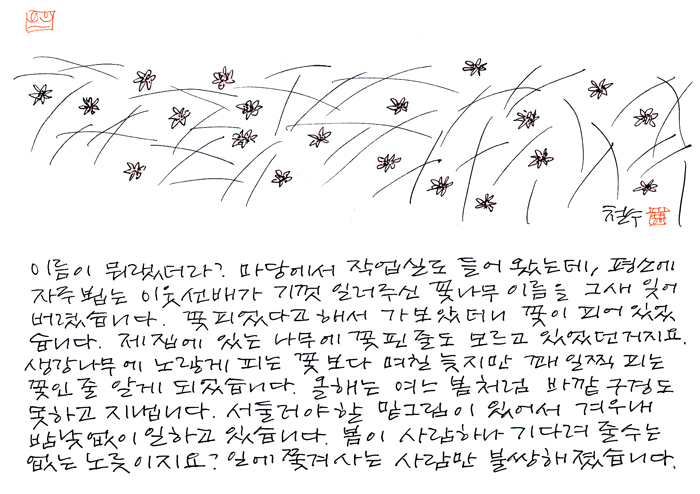 철수
이름이 뭐랬더라? 마당에서 작업실로 들어 왔는데, 평소에
자주 뵙는 이웃선배가 기껏 일러주신 꽃나무 이름을 그새 잊어
버렸습니다. 꽃피었다고 해서 가보았더니 꽃이 피어 있었
습니다. 제집에 있는 나무에 꽃핀 줄도 모르고 있었던거지요.
생강나무에 노랗게 피는 꽃보다 며칠 늦지만 꽤 일찍 피는
꽃인 줄 알게 되었습니다. 올해는 여느 봄처럼 바깥 구경도
못하고 지냅니다. 서둘러야 할 밑그림이 있어서 겨우내
밤낮없이 일하고 있습니다. 봄이 사람하나 기다려 줄수는
없는 노릇이지요? 일에 쫓겨사는 사람만 불쌍해졌습니다.